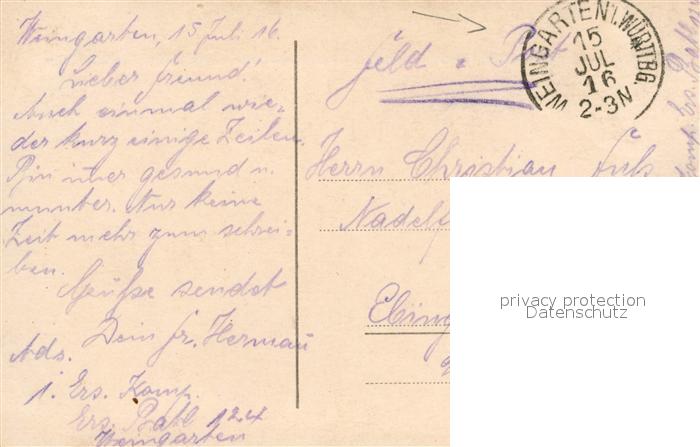 Weingarten, 15 Juli 16.
Lieber Freund!
Auch einmal wie-
der kurz einige Zeilen.
Bin imer gesund u.
munter. Nur keine
Zeit mehr zum schrei-
ben.
Grüße sendet
Dein fr. Hermann
Ads.
1. Ers. Komp.
Ers. Batl 124
Weingarten
Feld = Post
WEINGARTEN I. WÜRTTBG.
15
JUL
16
2-3N
Herrn Christian
Ebing
privacy protection
Datenschutz